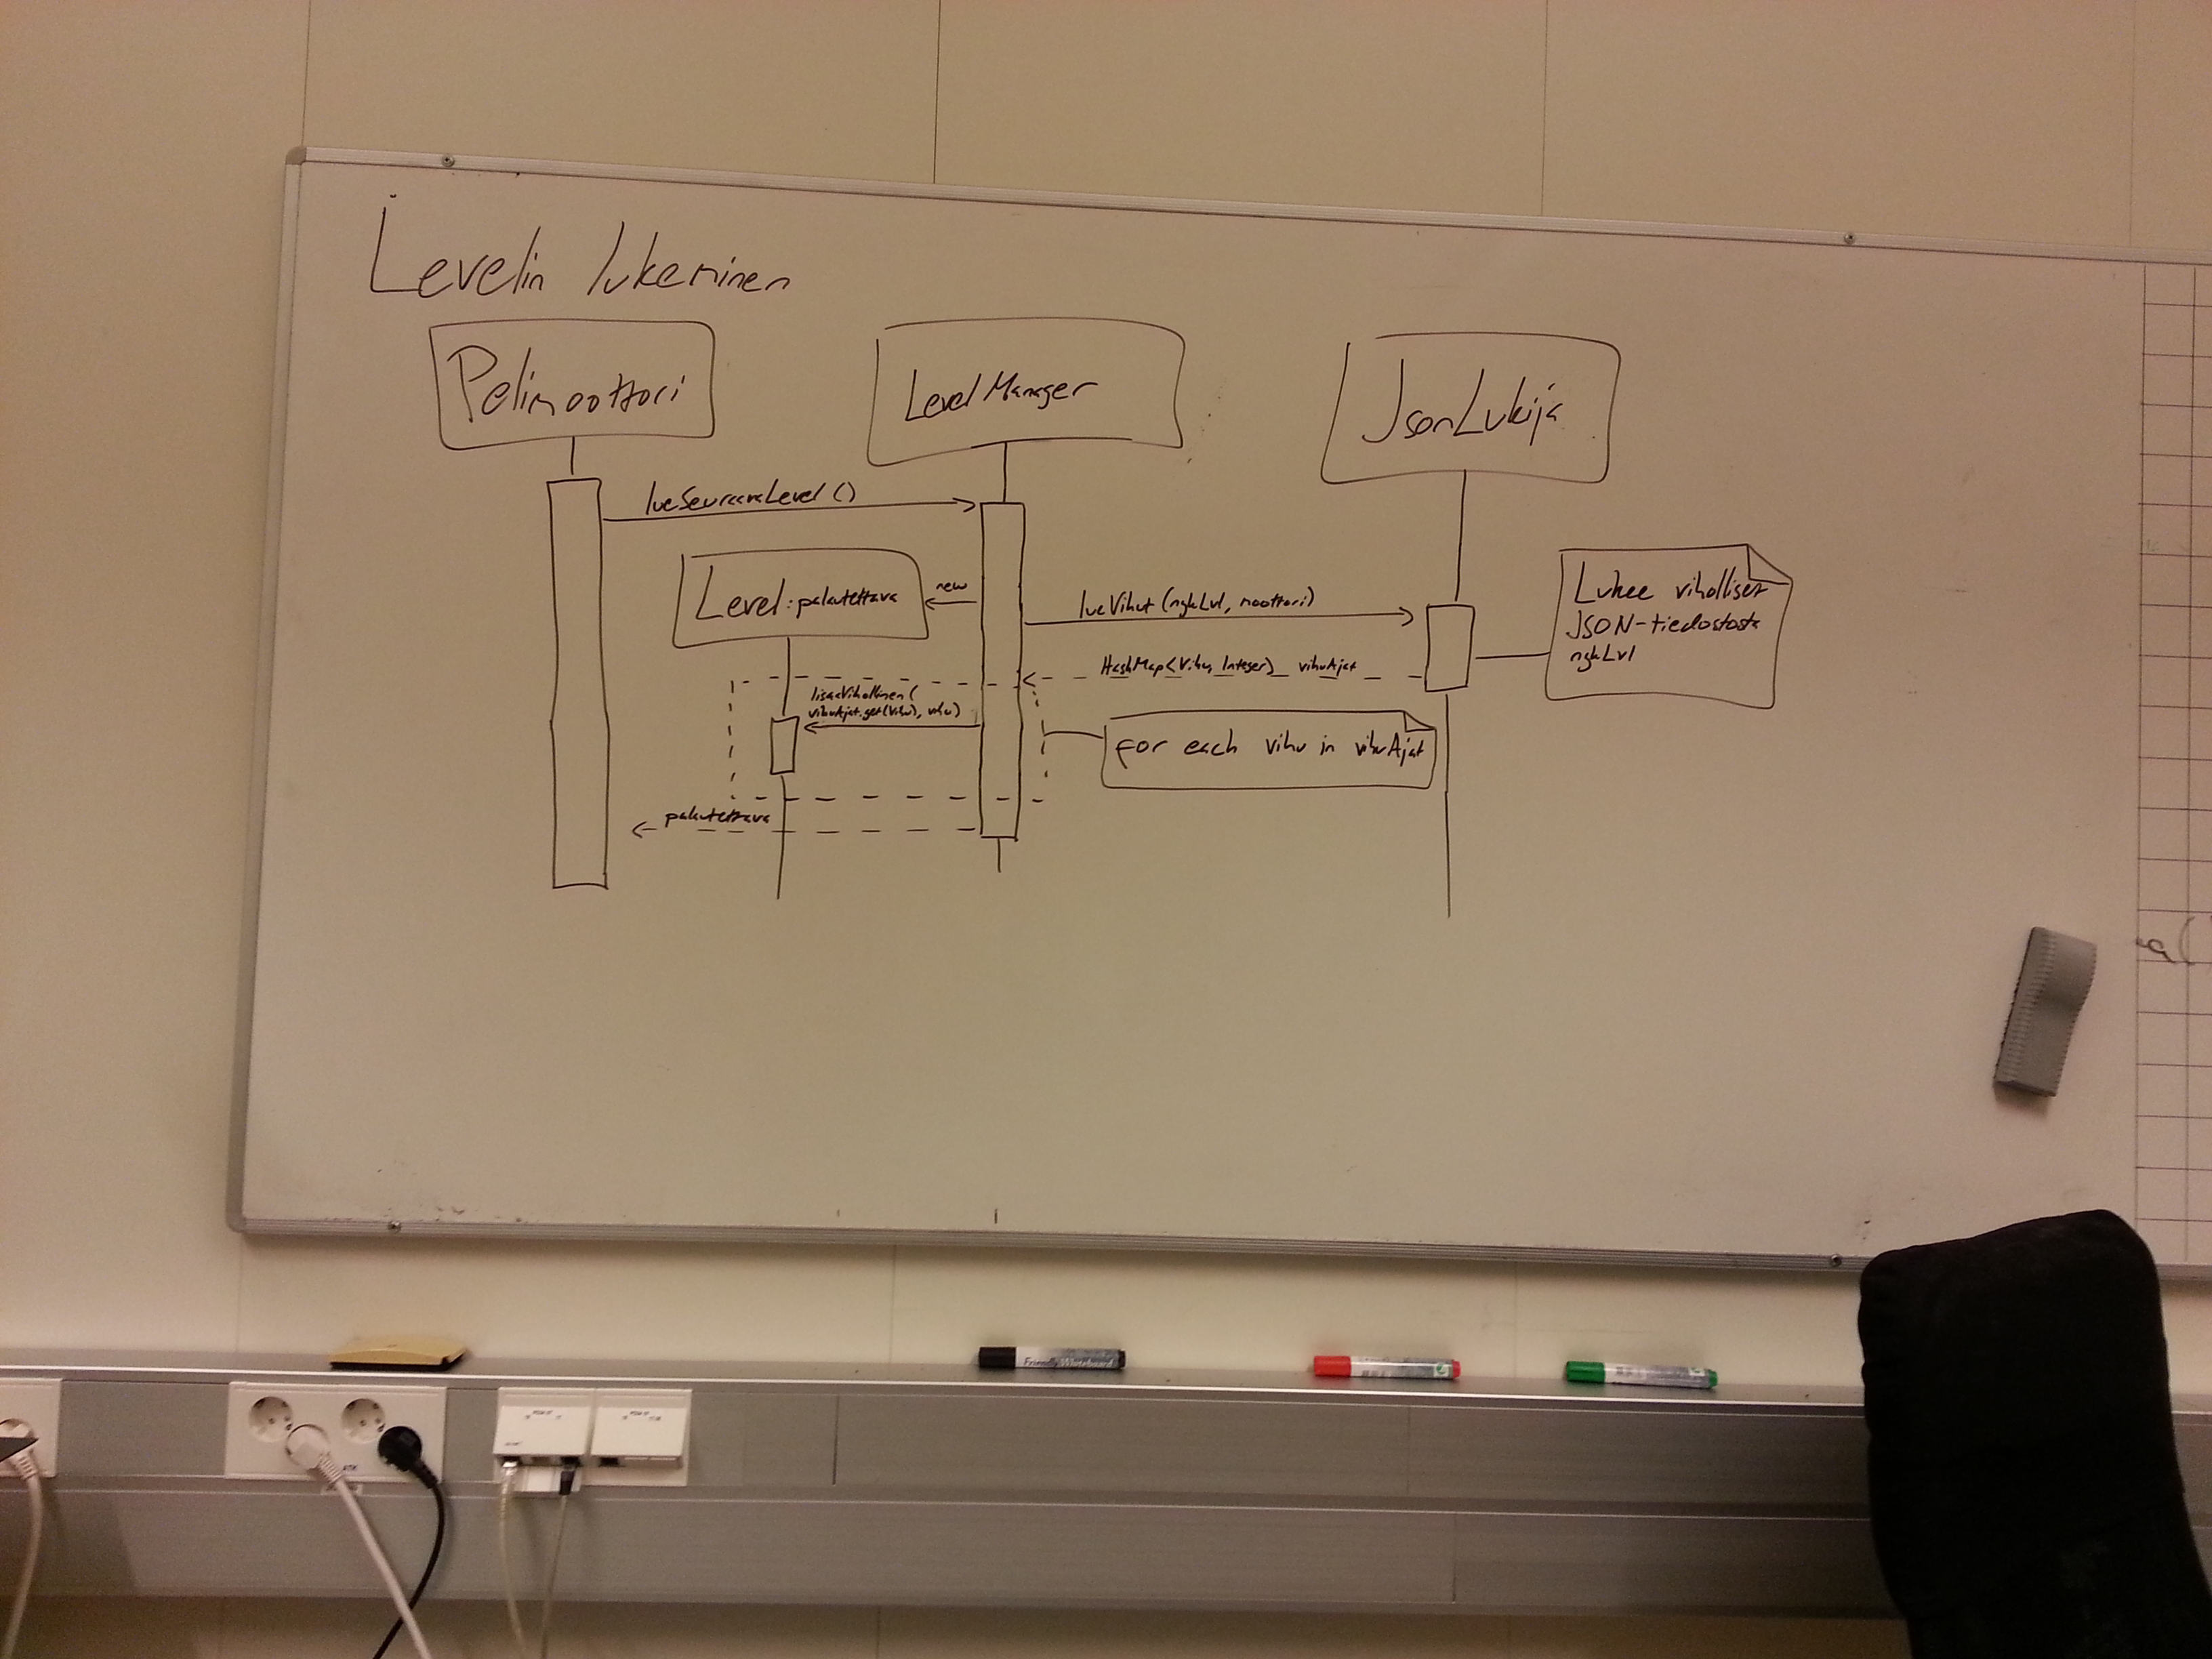 Levelin lukeminen
Pelimoottori
LevelManager
JsonLukija
lueSeuraavaLevel ()
Level: palautettava
new
lueVihut (nykLvl, moottori)
Lukee viholliset
JSON-tiedostosta
nykLvl
HashMap<Vihu, Integer> vihuAjat
lisaaVihollinen (
vihuAjat.get(vihu), vihu)
for each vihu in vihuAjat
palautettava
Friendly Whiteboard